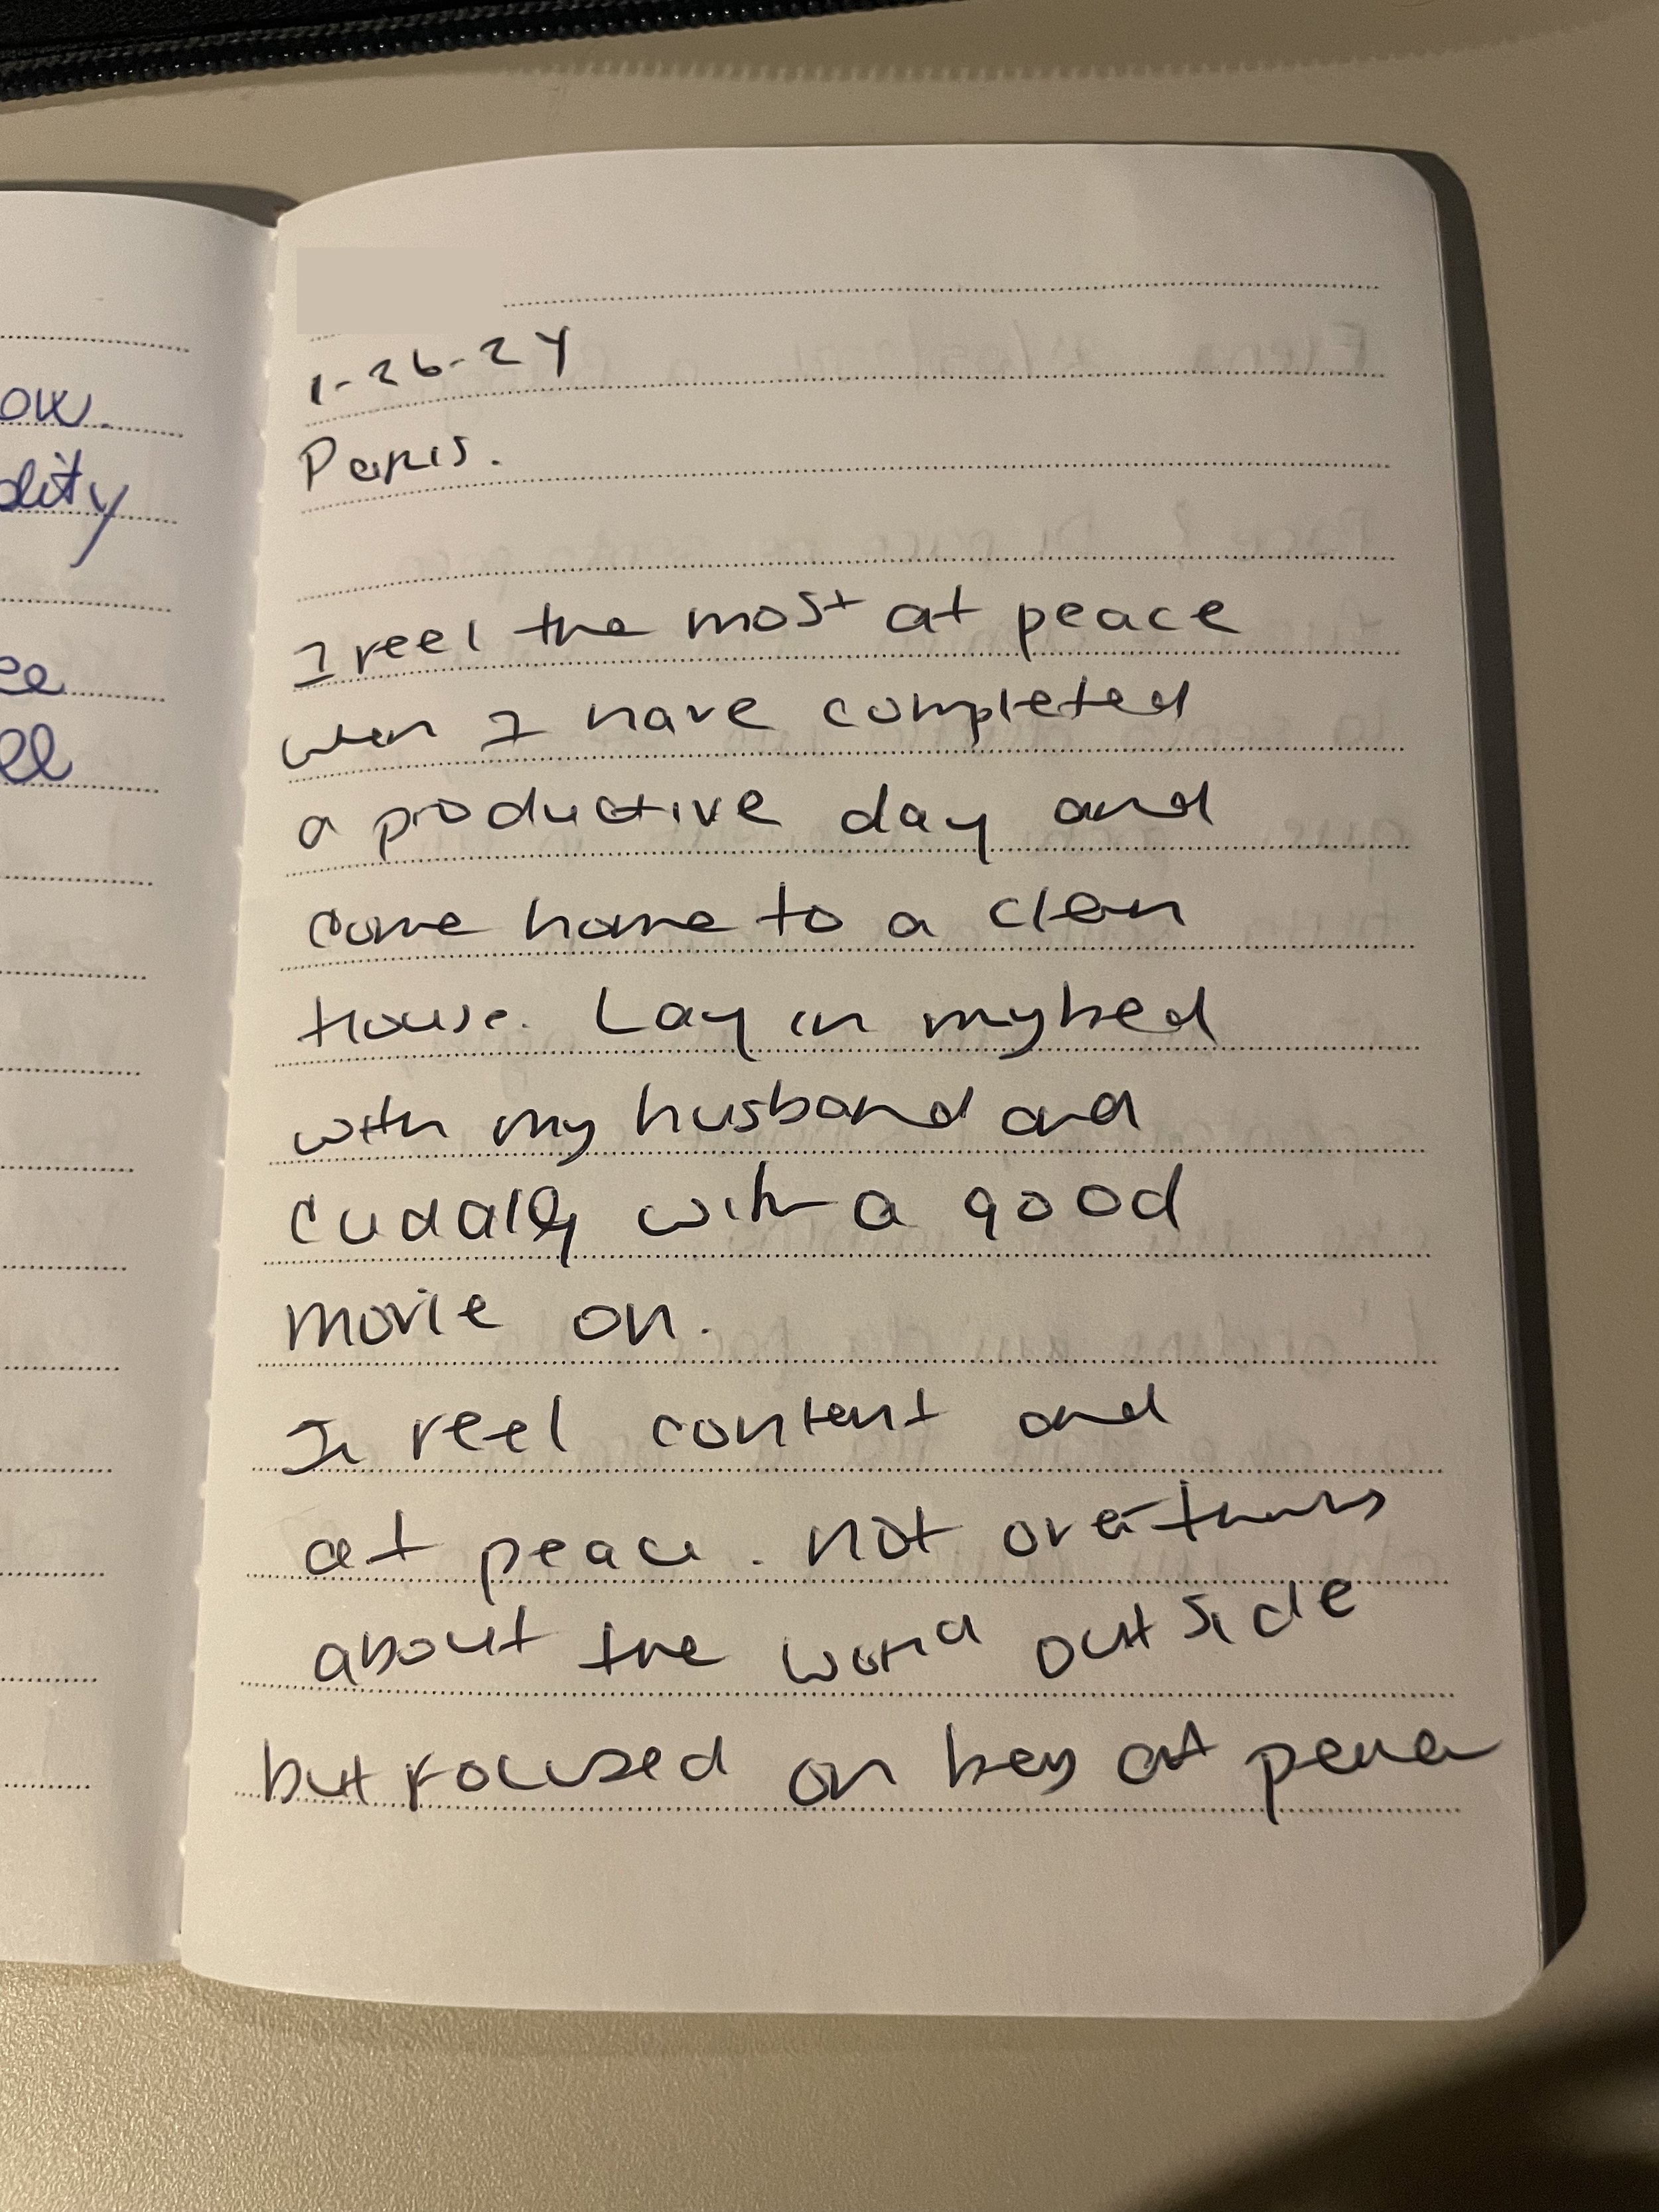 ow.
dity
ee
ell
1-26-24
Paris.
I feel the most at peace
when I have completed
a productive day and
come home to a clean
house. Lay in my bed
with my husband and
cuddly with a good
movie on.
I feel content and
at peace. Not
about the world outside
but focused on being at peace